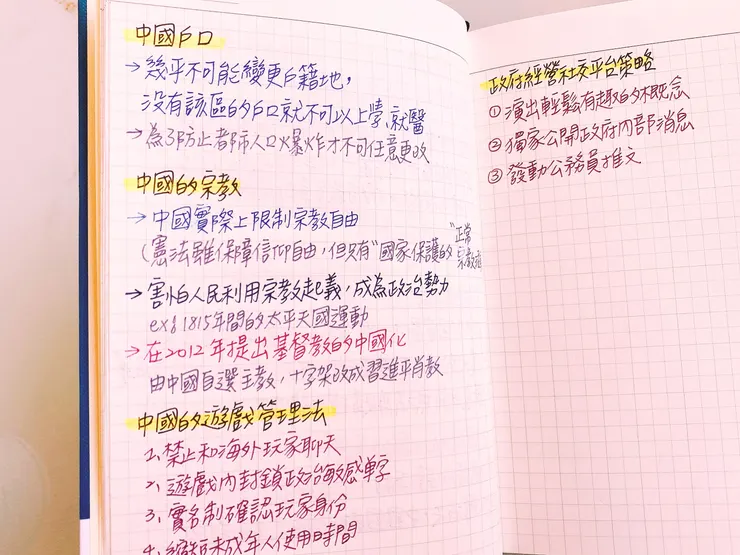 中國戶口
→幾乎不可能變更戶籍地，
沒有該區的戶口就不可以上學、就醫
→為了防止都市人口爆炸才不可任意更改
中國的宗教
→中國實際上限制宗教自由
(憲法雖保障信仰自由，但只有"國家保護的"正常
宗教
→害怕人民利用宗教起義，成為政治勢力
ex: 1815年間的太平天國運動
→在2012年提出基督教的中國化
由中國自選主教，十字架改成習進平肖教
中國的遊戲管理法
1、禁止和海外玩家聊天
2、遊戲內封鎖政治敏感單字
3、實名制確認玩家身份
4、縮短未成年人使用時間
政府經營社交平台策略
① 演出輕鬆有趣的概念
② 獨家公開政府內部消息
③ 發動公務員推文